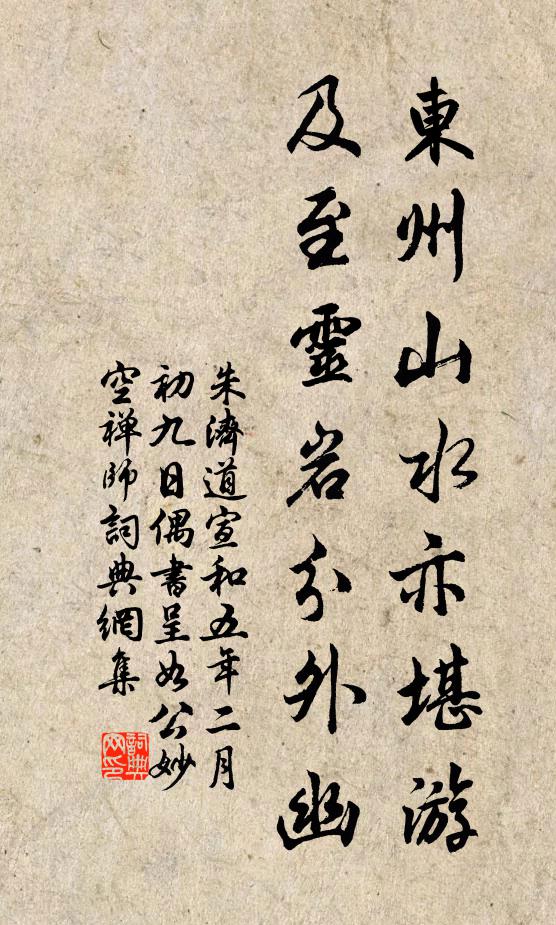 東州山水亦堪游
及至靈岩分外幽
朱濟道宣和五年二月
初九日偶書呈如公妙
空禅師詞典網集
詞典网印